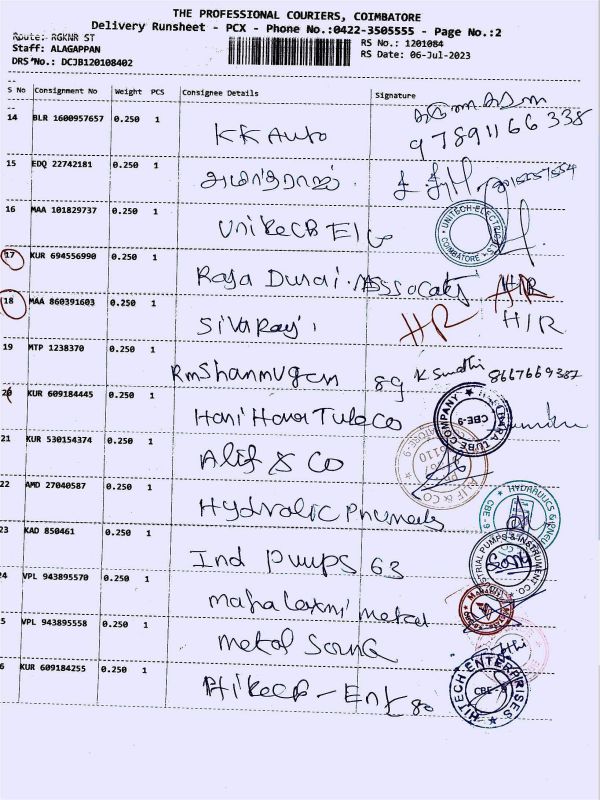 THE PROFESSIONAL COURIERS, COIMBATORE
Delivery Runsheet - PCX - Phone No.:0422-3505555 - Page No.:2
Route: RGKNR ST
RS No.: 1201084
Staff: ALAGAPPAN
RS Date: 06-Jul-2023
DRS No.: DCJB120108402
S No Consignment No Weight PCS Consignee Details Signature
14 BLR 1600957657 0.250 1 KK Auto 97891166338
15 EDQ 22742181 0.250 1
16 MAA 101829737 0.250 1 UNITECH-ELECTRICALS COIMBATORE
17 KUR 694556990 0.250 1 Raja Durai H/R
18 MAA 860391603 0.250 1 HR H/R
19 MTP 1238370 0.250 1 Rm Shanmugam 89 K Sumathi 8667669387
20 KUR 609184445 0.250 1 Hari Hara Tube Co TUBE COMPANY CBE-9
21 KUR 530154374 0.250 1 Alif & Co ALIF & CO
22 AMD 27040587 0.250 1 HYDRAULICS & CBE-9
23 KAD 850461 0.250 1 Ind Pumps 63 PUMPS & INSTRUMENT CO
24 VPL 943895570 0.250 1 Mahalaxmi Metal
5 VPL 943895558 0.250 1 Metal
6 KUR 609184255 0.250 1 HITECH ENTERPRISES CBE-9